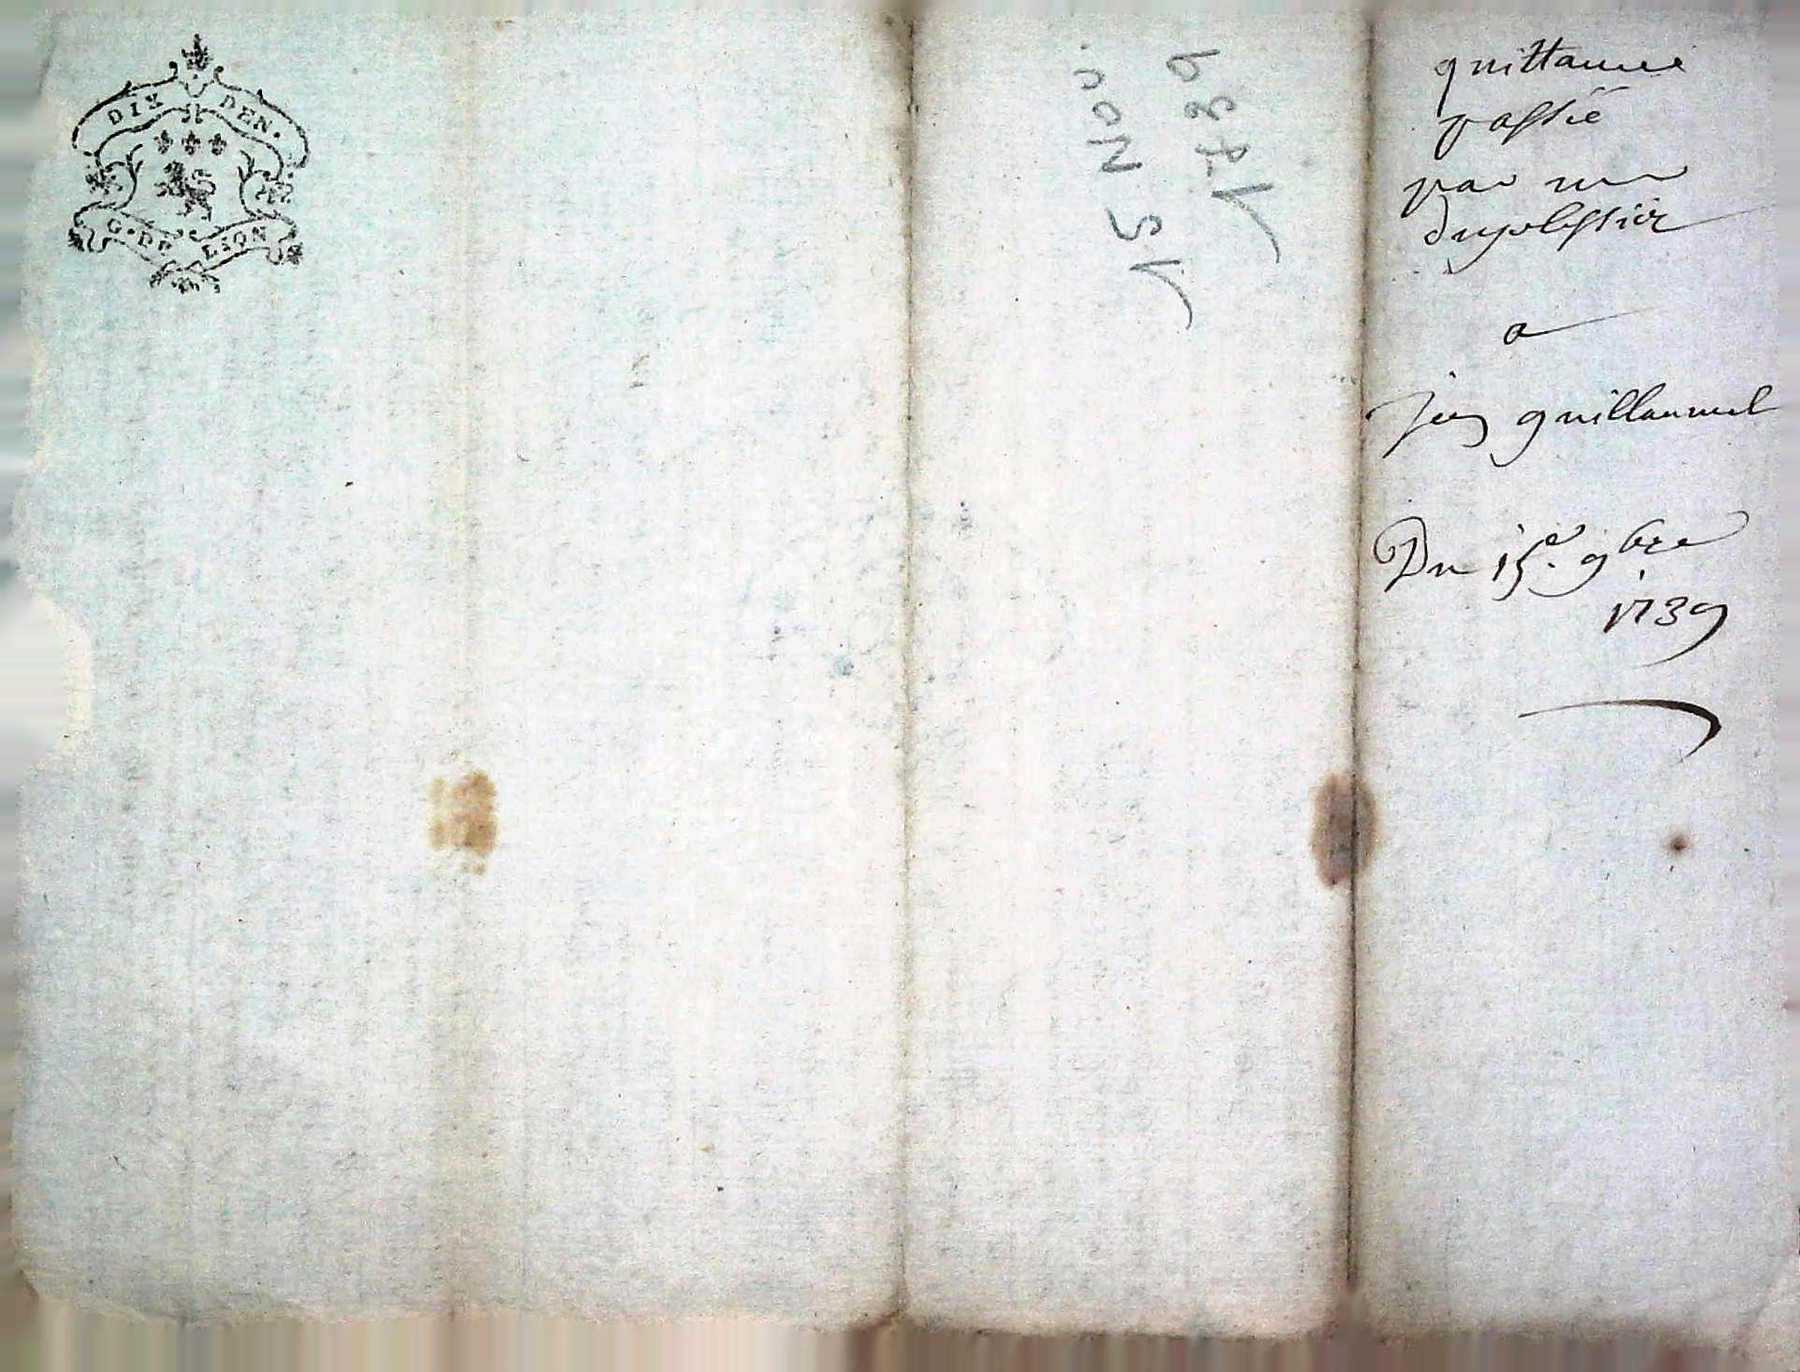 DIX DEN.
G. DE LION
15 Nov
1739
quittance
passée
par mr
duplessier
a
jean guillaumel
Du 15e. 9bre
1739